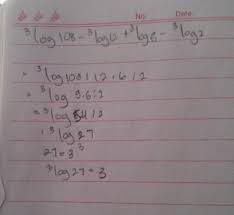 No. Date.
³log 108 - ³log 12 + ³log 6 - ³log 2
= ³log 108 : 12 . 6 : 2
= ³log 9.6 : 2
= ³log 54 : 2
³log 27
27 = 3³
³log 27 = 3